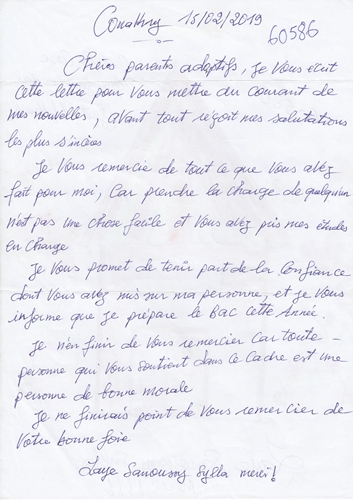 Conakry 15/02/2019
60586
Chèrs parents adoptifs, je vous ecrit
cette lettre pour vous mettre au courant de
mes nouvelles, avant tout réçoit mes salutations
les plus s'incères
Je vous remercie de tout ce que vous avez
fait pour moi, Car prendre la charge de quelqu'un
n'est pas une chose facile et vous avez pris mes études
en charge
Je vous promet de tenir part de la Confiance
dont vous avez mis sur ma personne, et je vous
informe que je prépare le BAC cette Année.
Je n'en finir de vous remercier car toute
personne qui vous soutient dans ce Cadre est une
personne de bonne morale
Je ne finirais point de vous remercier de
votre bonne foie
Laye Sanoussy Sylla merci!